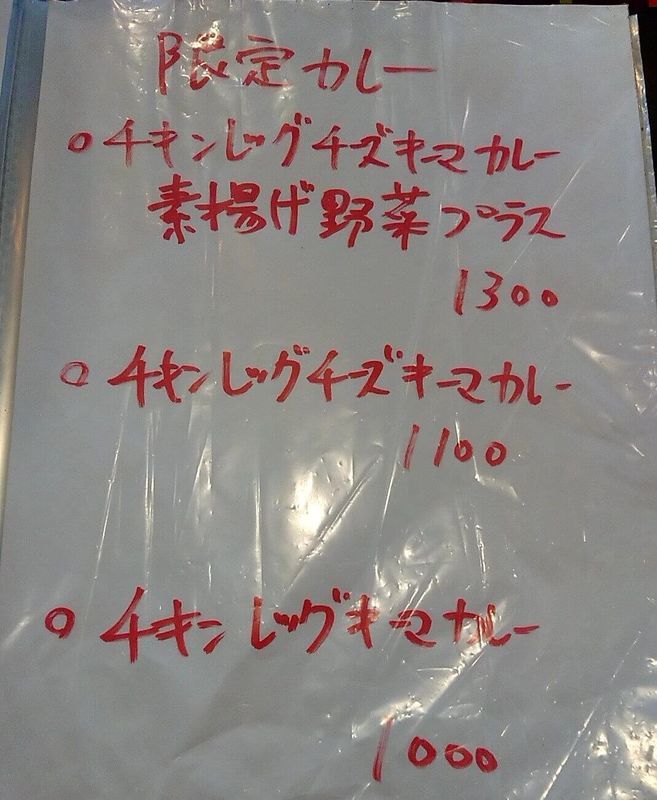 限定カレー
○チキンレッグチーズキーマカレー
素揚げ野菜プラス
1300
○チキンレッグチーズキーマカレー
1100
○チキンレッグキーマカレー
1000